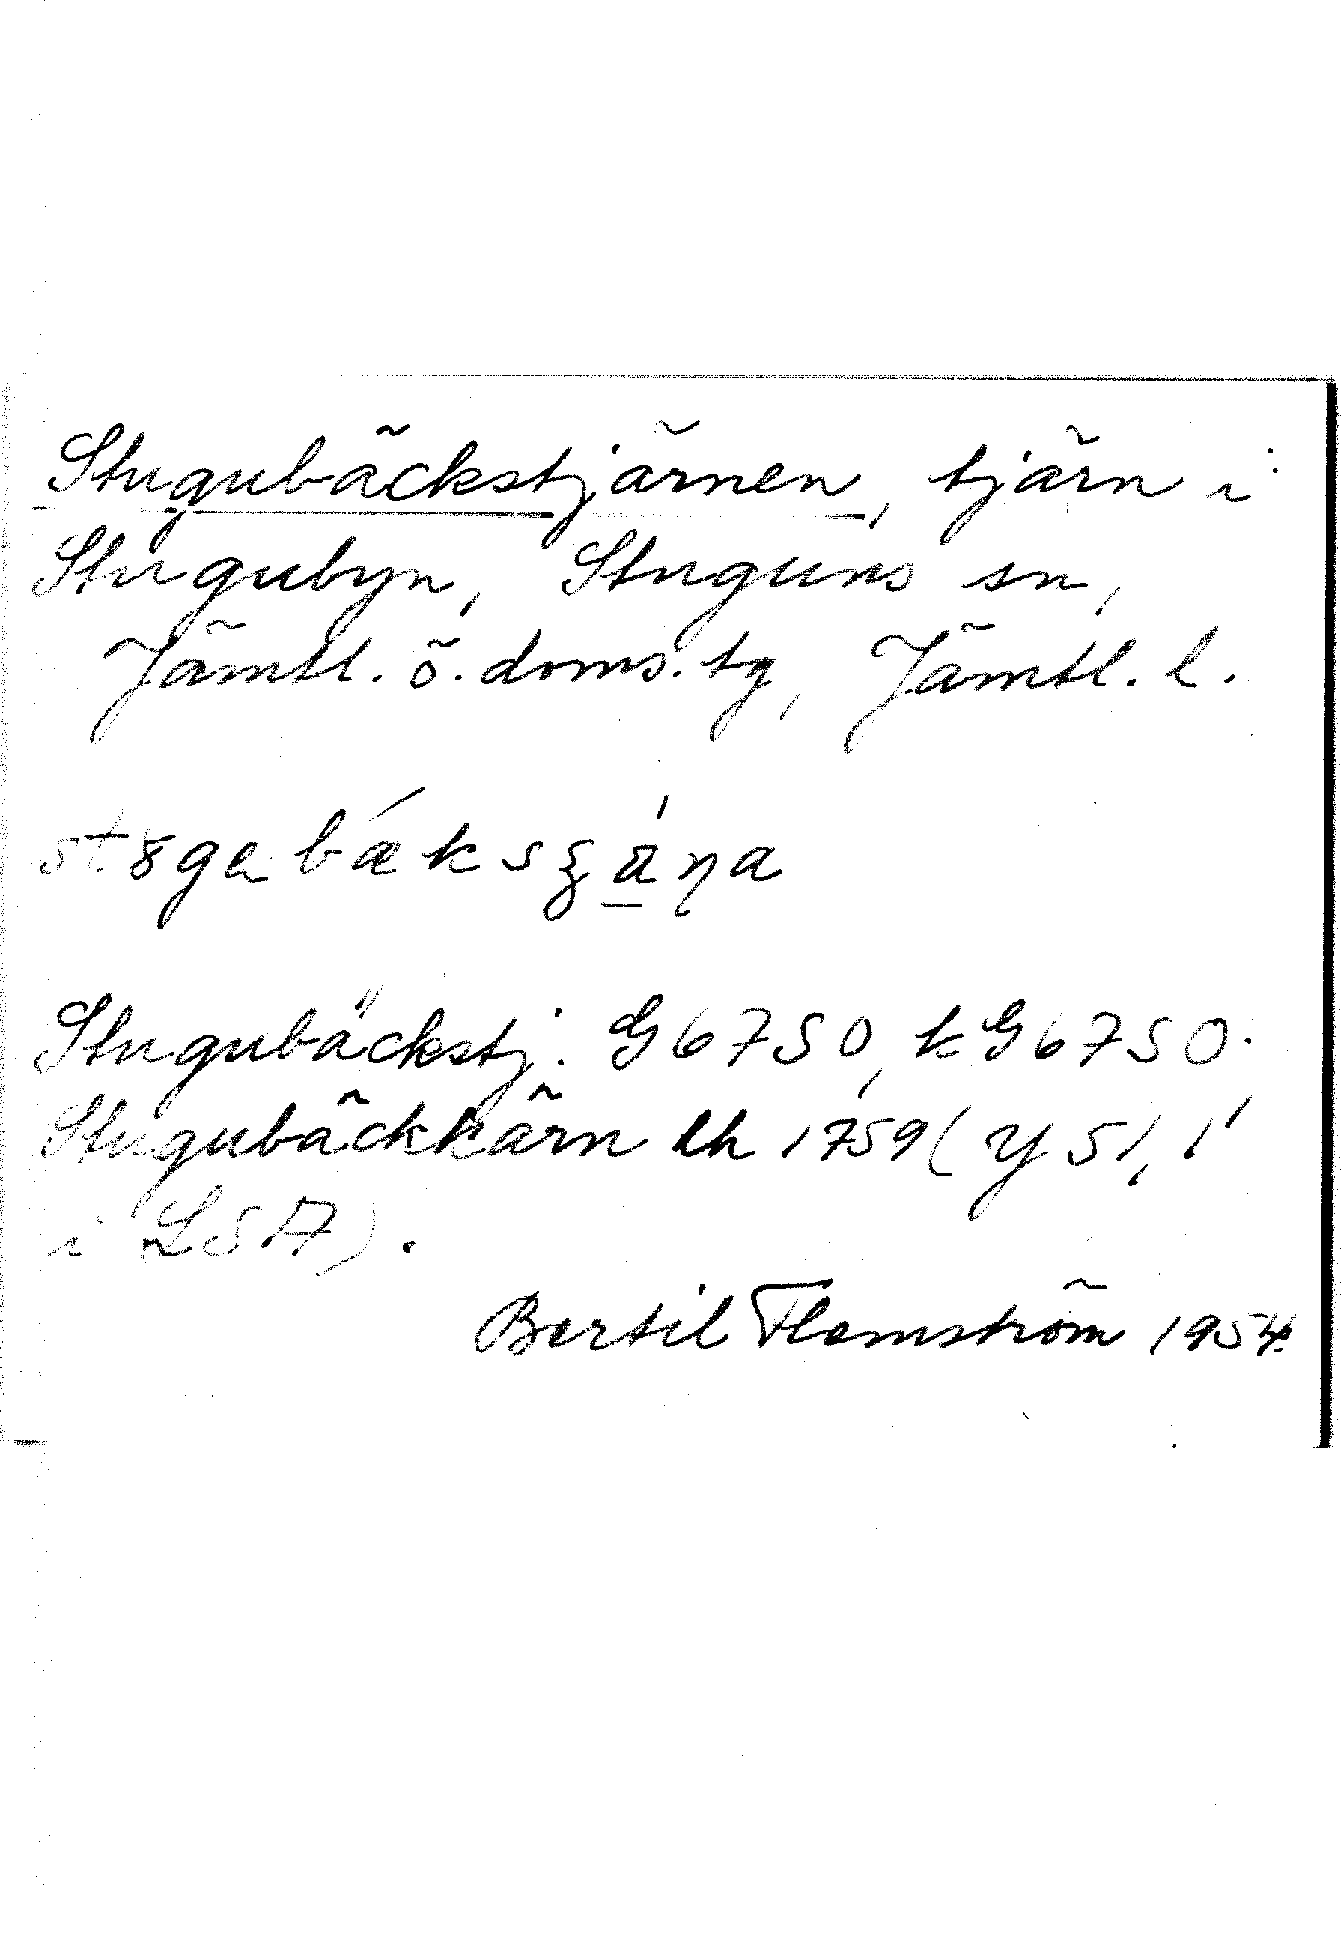 Stugubäckstjärnen, tjärn i
Stugubyn, Stuguns sn,
Jämtl. ö. doms. tg, Jämtl. l.
Stugubäckstj. G6750, kG6750.
Stugubäckkärn lh 1759 (Y51,1
i LSA).
Bertil Flemström 1954.